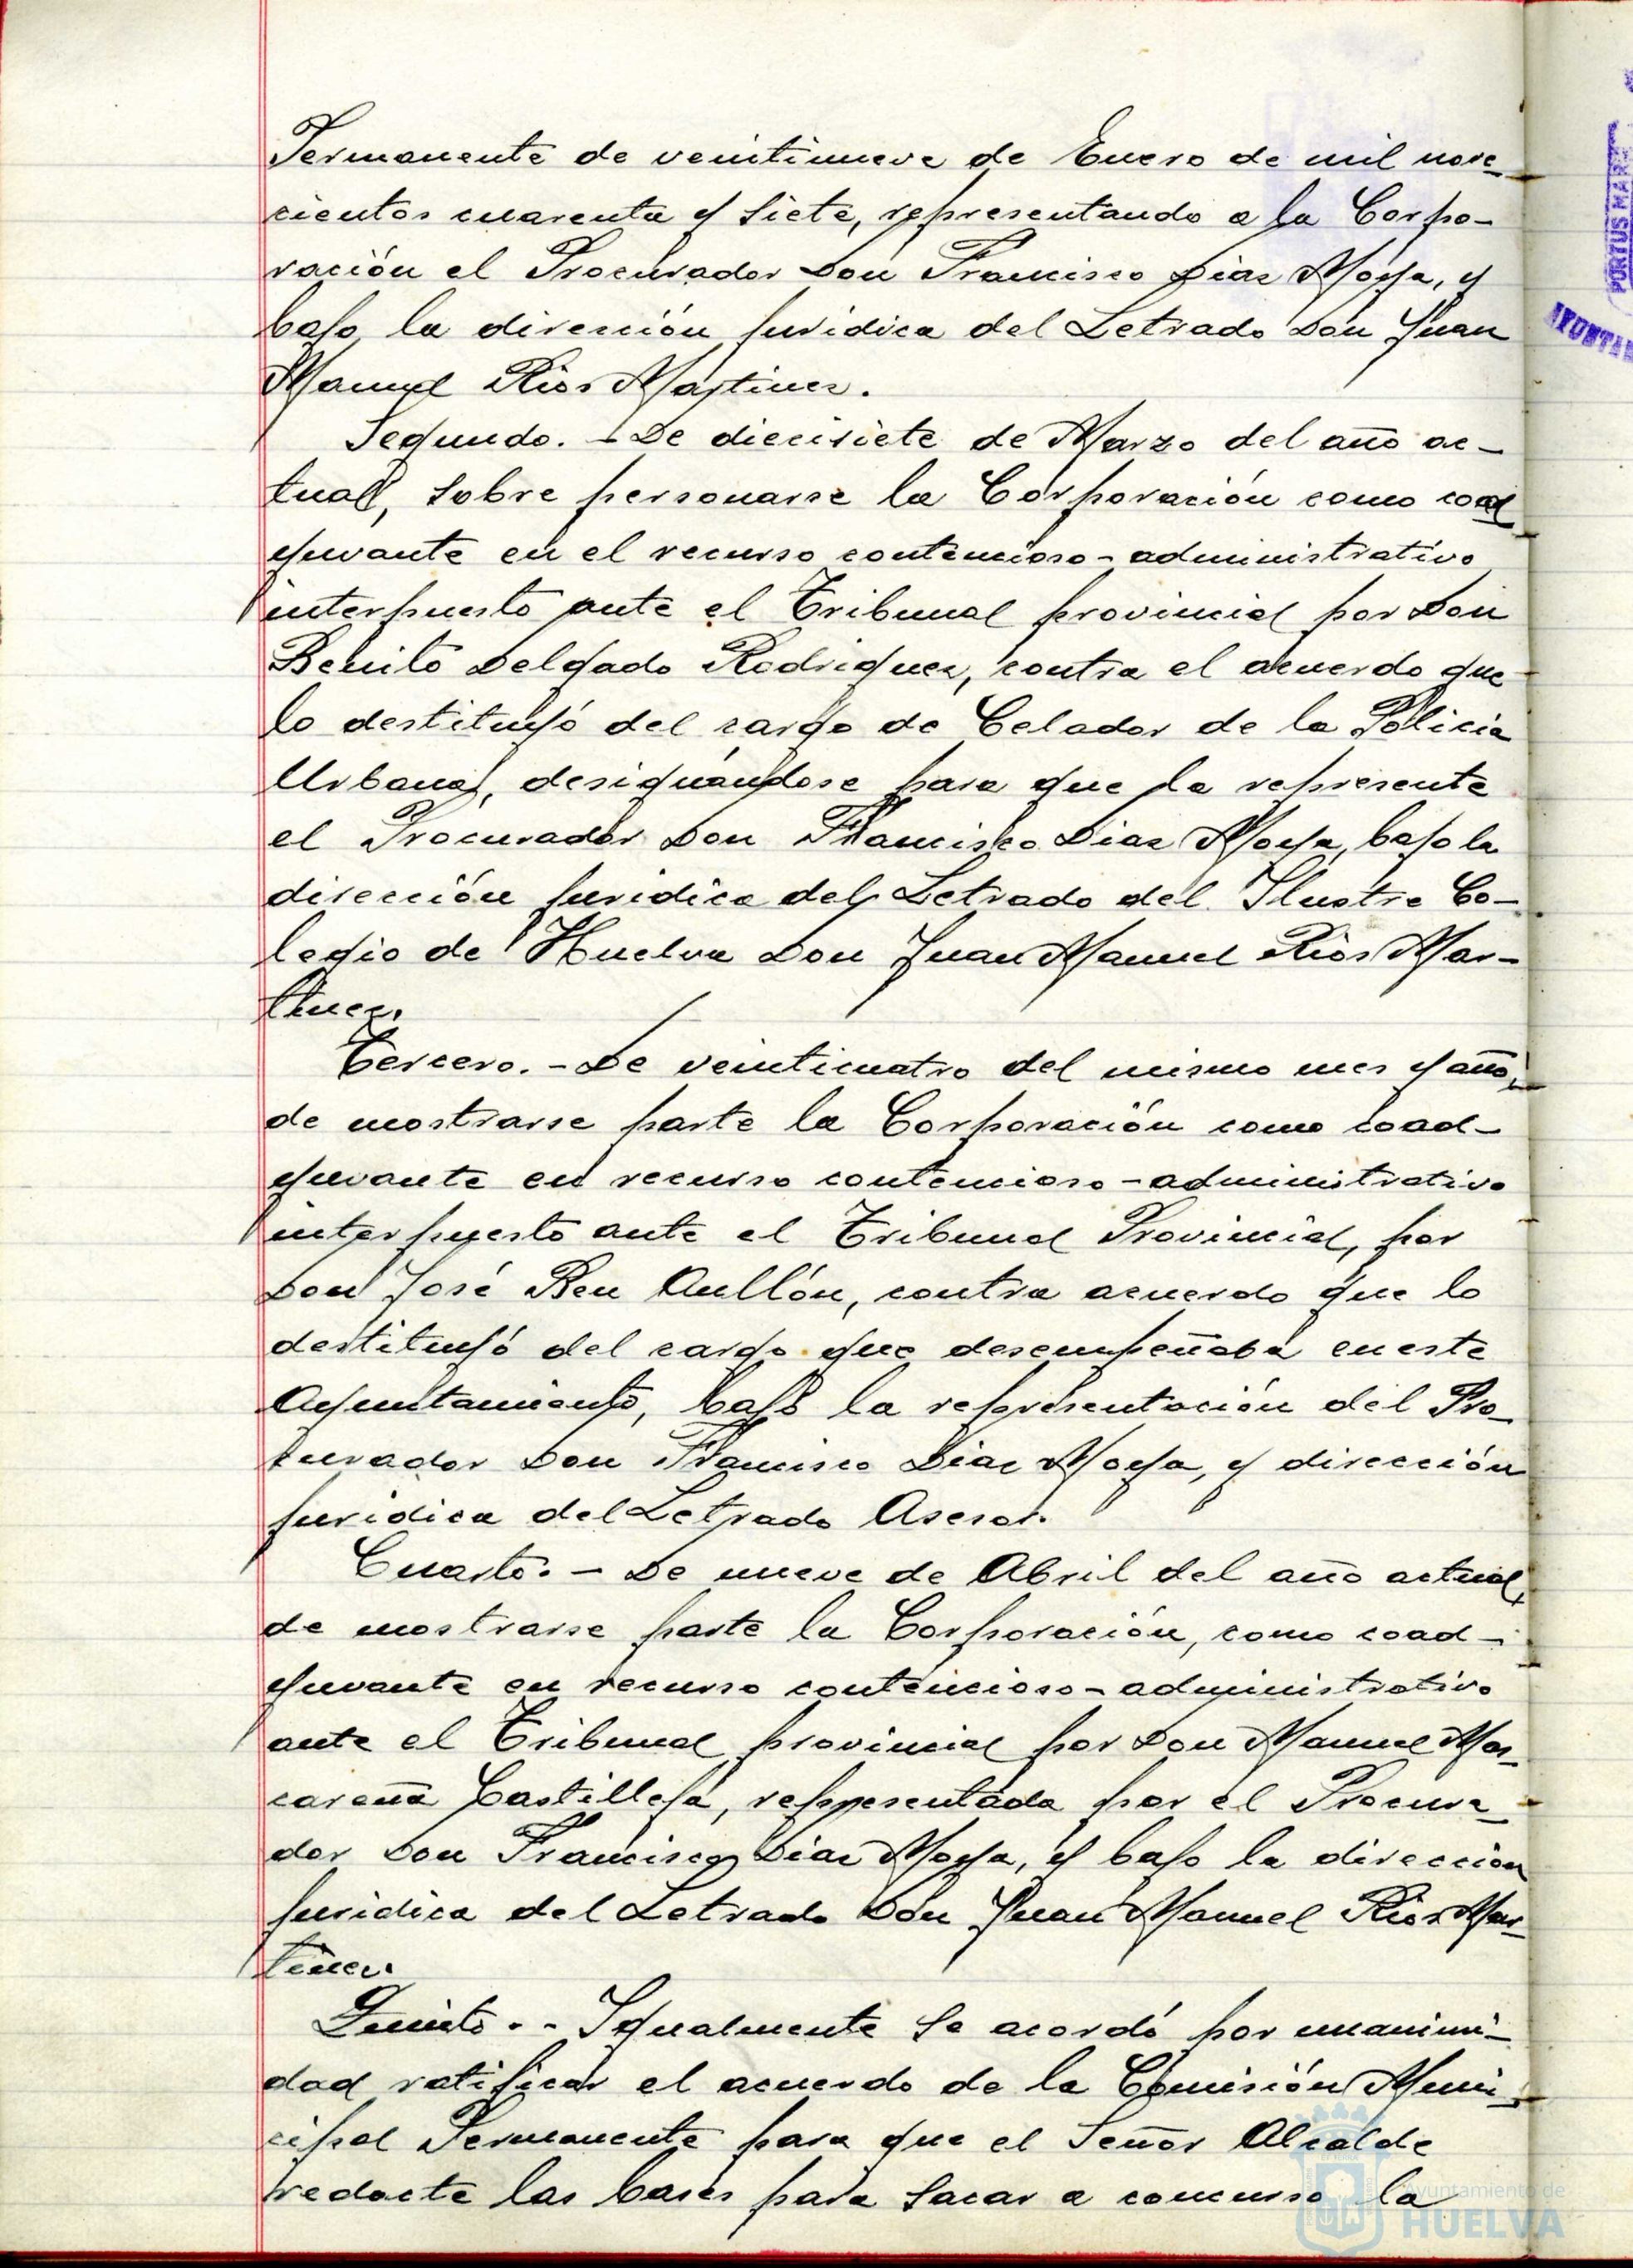 Permanente de veintinueve de Enero de mil nove-
cientos cuarenta y siete, representando a la Corpo-
ración el Procurador Don Francisco Diaz Moya, y
bajo la dirección juridica del Letrado Don Juan
Manuel Rios Martinez.
Segundo. - De diecisiete de Marzo del año ac-
tual, sobre personarse la Corporación como coad
yuvante en el recurso contencioso-administrativo
interpuesto ante el Tribunal provincial por Don
Benito Delgado Rodriguez, contra el acuerdo que
lo destituyó del cargo de Celador de la Policia
Urbana, designándose para que la represente
el Procurador Don Francisco Diaz Moya, bajo la
dirección juridica del Letrado del Ilustre Co-
legio de Huelva Don Juan Manuel Rios Mar-
tinez.
Tercero. - De veinticuatro del mismo mes y año,
de mostrarse parte la Corporación como coad-
yuvante en recurso contencioso-administrativo
interpuesto ante el Tribunal Provincial, por
Don José Rey Aullón, contra acuerdo que lo
destituyó del cargo que desempeñaba en este
Ayuntamiento, bajo la representación del Pro-
curador Don Francisco Diaz Moya, y dirección
juridica del Letrado Asesor.
Cuarto. - De nueve de Abril del año actual,
de mostrarse parte la Corporación, como coad-
yuvante en recurso contencioso-administrativo
ante el Tribunal provincial por Don Manuel Mas-
careña Castilleja, representada por el Procura-
dor Don Francisco Diaz Moya, y bajo la dirección
juridica del Letrado Don Juan Manuel Rios Mar-
tinez.
Quinto. - Igualmente se acordó por unanimi-
dad ratificar el acuerdo de la Comisión Muni-
cipal Permanente para que el Señor Alcalde
redacte las bases para sacar a concurso la
PORTUS MARIS
AYUNTA
Ayuntamiento de
HUELVA